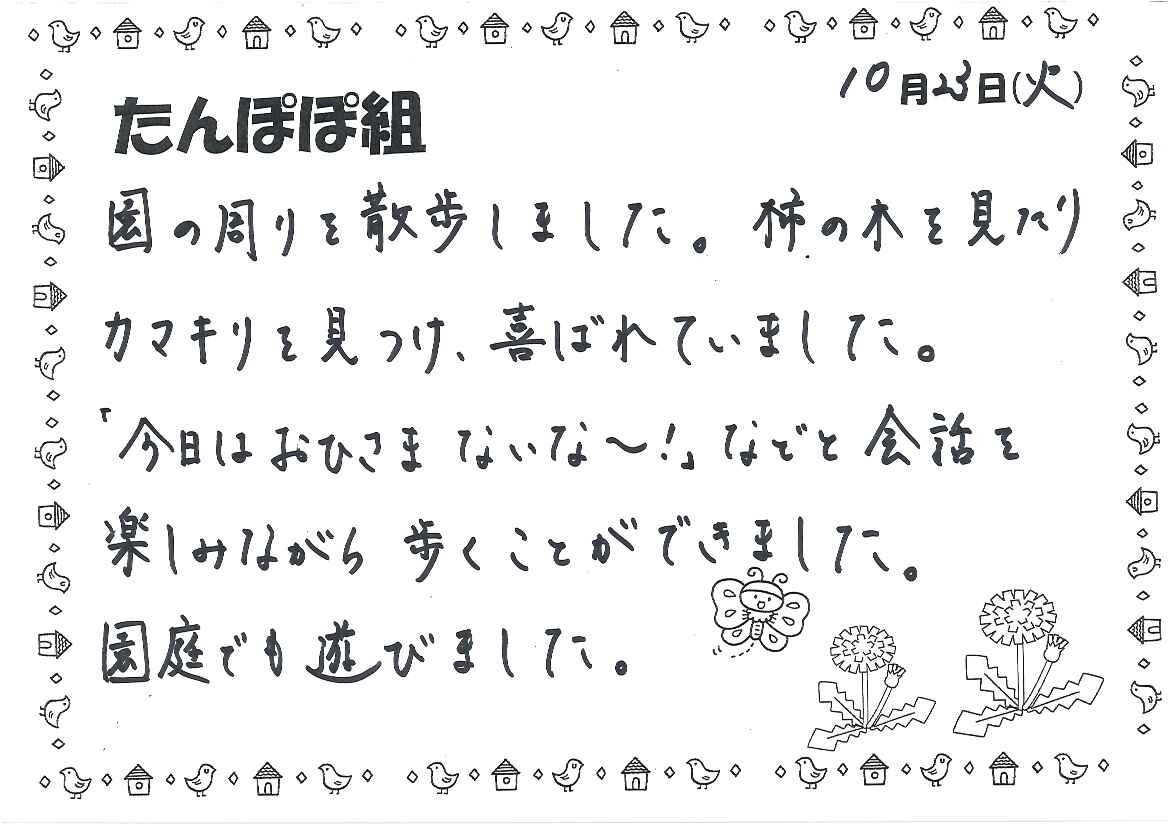 10月23日(火)
たんぽぽ組
園の周りを散歩しました。柿の木を見たり
カマキリを見つけ、喜ばれていました。
「今日はおひさまないな～!」などと会話を
楽しみながら歩くことができました。
園庭でも遊びました。